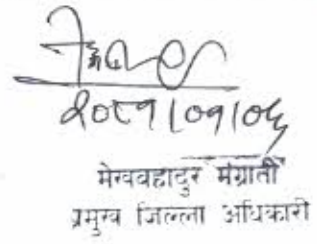 २०८१।०१।०६
मेखबहादुर मंग्राती
प्रमुख जिल्ला अधिकारी